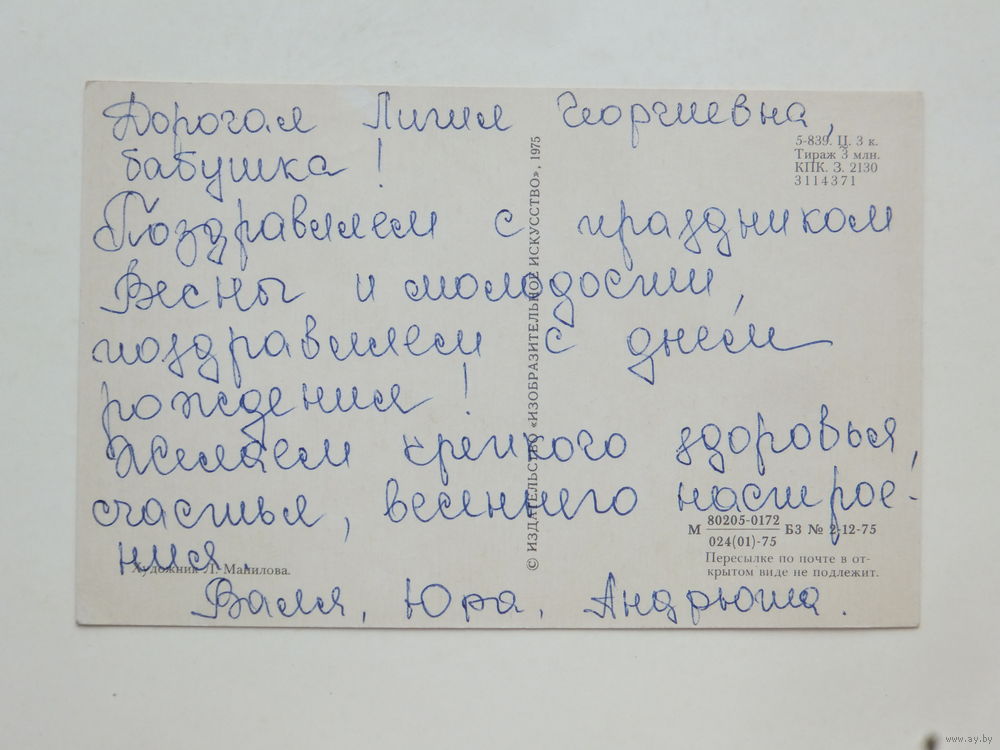 Дорогая Лигия Георгиевна,
бабушка!
Поздравляем с праздником
Весны и молодости,
поздравляем с днём
рождения!
Желаем крепкого здоровья,
счастья, весеннего настрое-
ния.
Валя, Юра, Андрюша.
5-839. Ц. 3 к.
Тираж 3 млн.
КПК. З. 2130
3114371
© ИЗДАТЕЛЬСТВО «ИЗОБРАЗИТЕЛЬНОЕ ИСКУССТВО», 1975
М 80205-0172 БЗ № 2-12-75
024(01)-75
Пересылке по почте в от-
крытом виде не подлежит.
Художник Л. Манилова.
www.ay.by